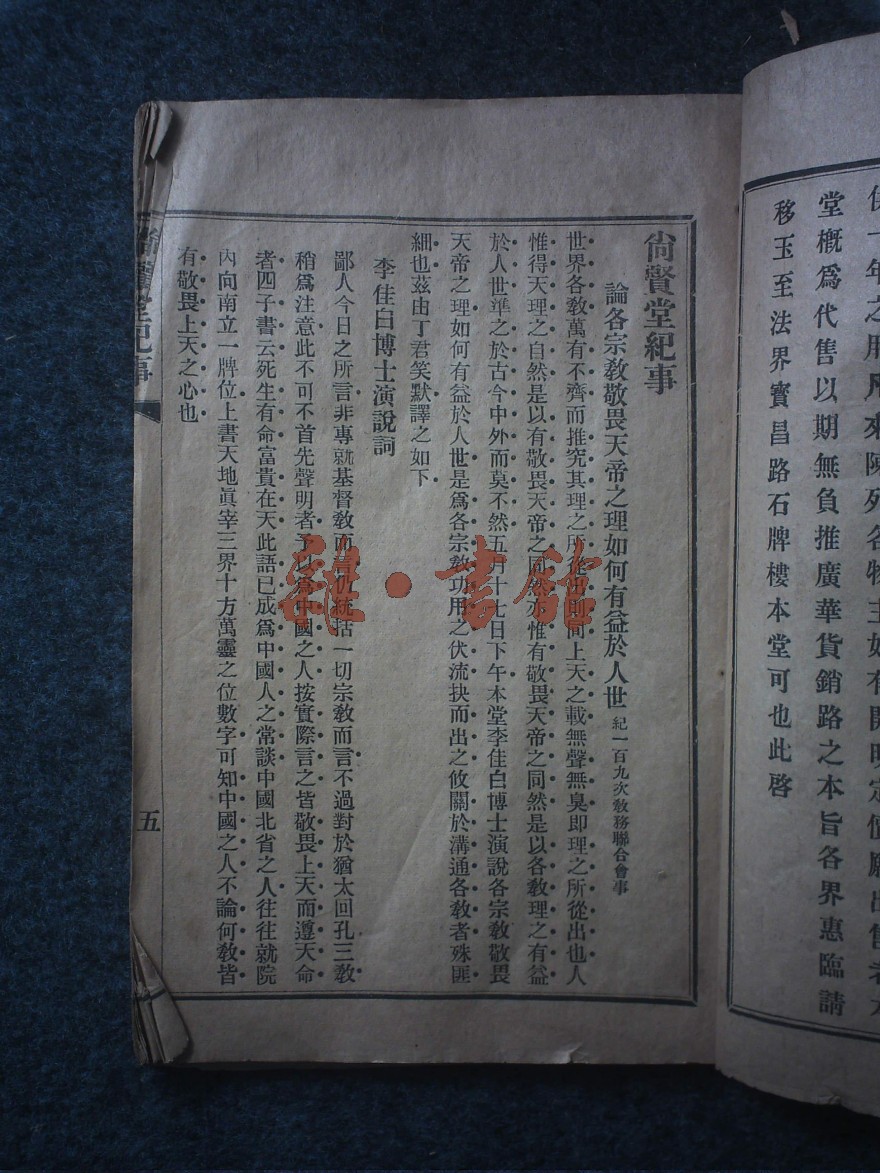 保一年之用凡來陳列各物主如有開明定價願出售者本
堂概爲代售以期無負推廣華貨銷路之本旨各界惠臨請
移玉至法界寶昌路石牌樓本堂可也此啓
尙賢堂紀事
論各宗敎敬畏天帝之理如何有益於人世 紀一百九次敎務聯合會事
世界各敎萬有不齊而推究其理之所從出則同上天之載無聲無臭即理之所從出也人
惟得天理之自然是以有敬畏天帝之同然亦惟有敬畏天帝之同然是以各敎理之有益
於人世準之於古今中外而莫不然五月十七日下午本堂李佳白博士演說各宗敎敬畏
天帝之理如何有益於人世是爲各宗敎功用之伏流抉而出之攸關於溝通各敎者殊匪
細也茲由丁君笑默譯之如下
李佳白博士演說詞
鄙人今日之所言非專就基督敎而言仍統括一切宗敎而言不過對於猶太回孔三敎
稍爲注意此不可不首先聲明者予以爲中國之人按實際言之皆敬畏上天而遵天命
者四子書云死生有命富貴在天此語已成爲中國人之常談中國北省之人往往就院
內向南立一牌位上書天地眞宰三界十方萬靈之位數字可知中國之人不論何敎皆
有敬畏上天之心也
尙賢堂紀事
五
雜·書館